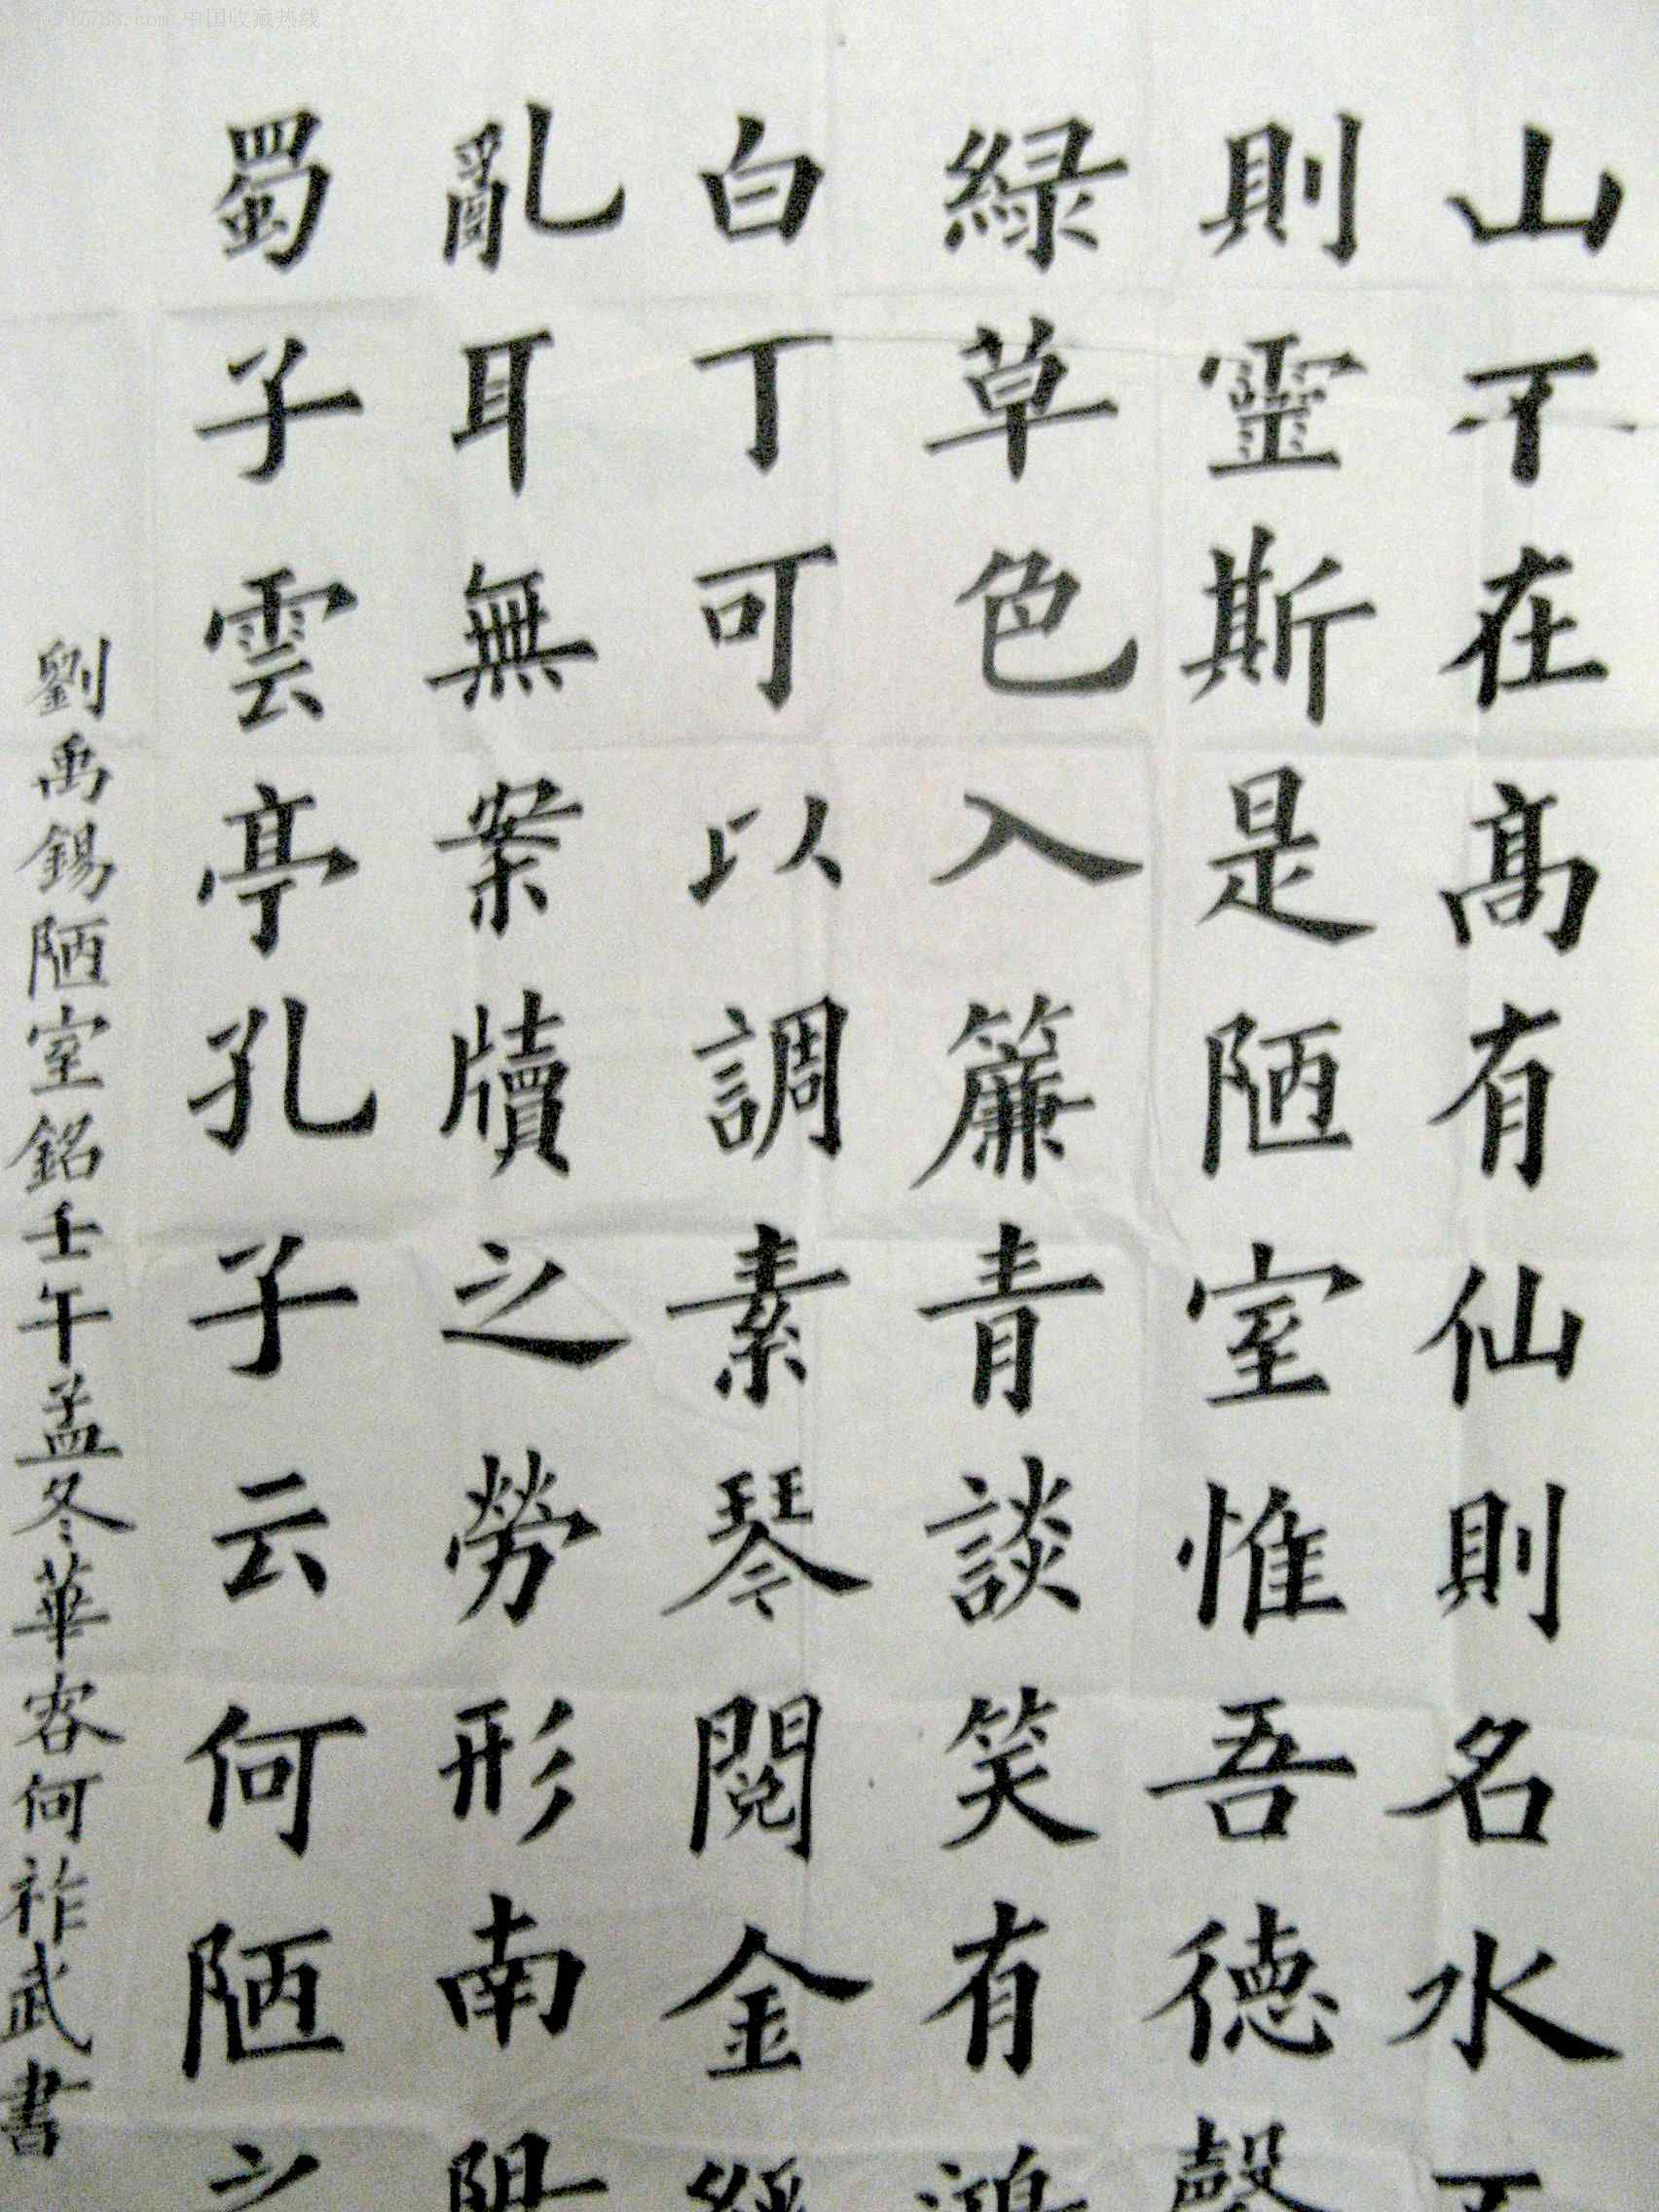 山不在高有仙則名水不
則靈斯是陋室惟吾德馨
綠草色入簾青談笑有鴻
白丁可以調素琴閱金經
亂耳無案牘之勞形南陽
蜀子雲亭孔子云何陋之
劉禹錫陋室銘壬午孟冬華容何祚武書
中国收藏热线